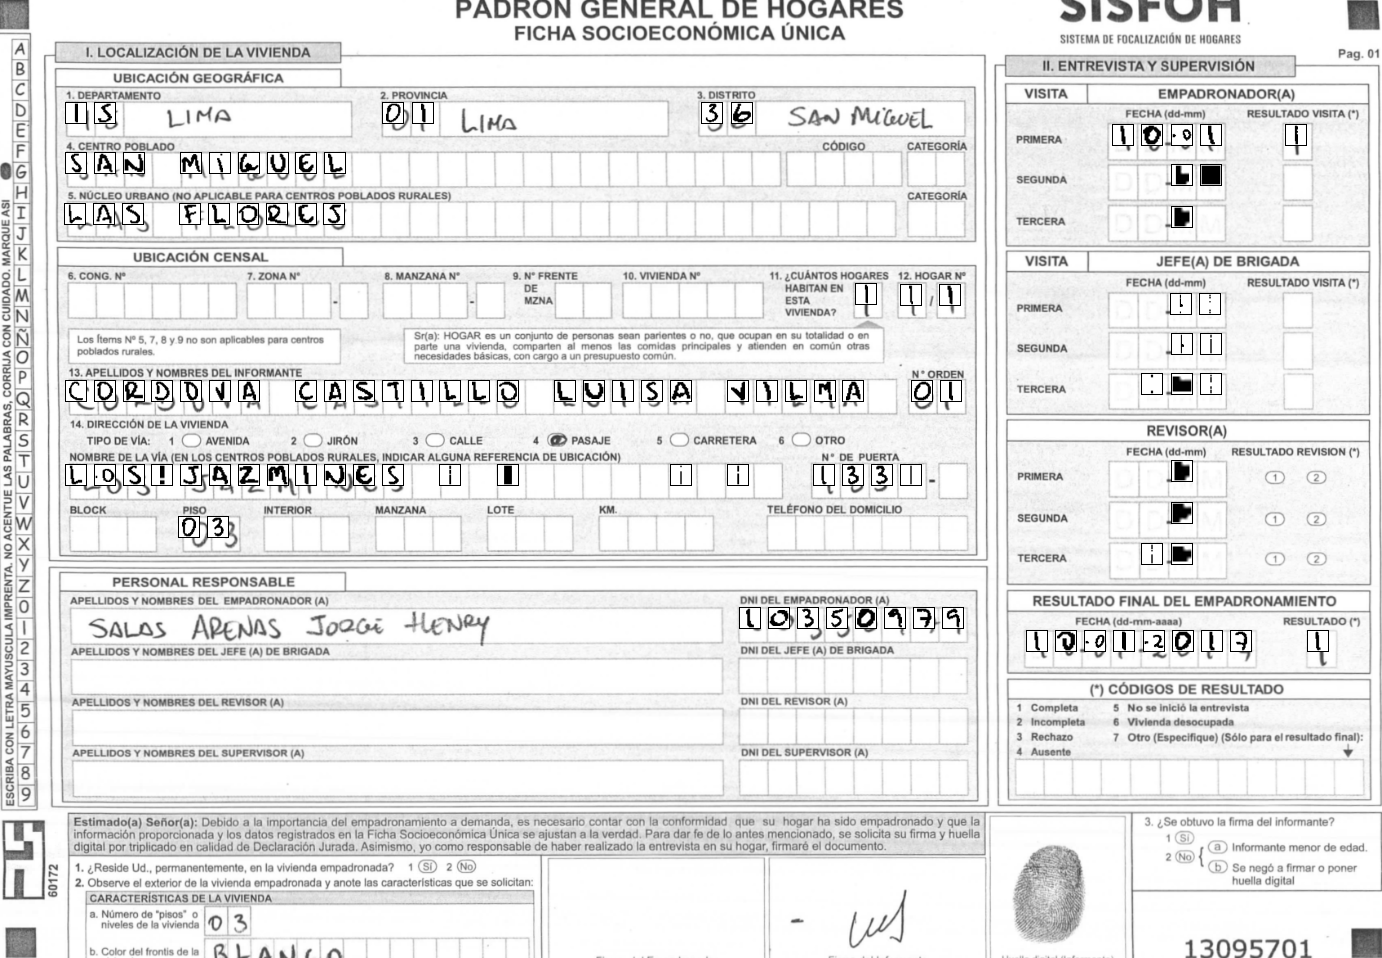 PADRÓN GENERAL DE HOGARES
FICHA SOCIOECONÓMICA ÚNICA
SISFOH
SISTEMA DE FOCALIZACIÓN DE HOGARES
Pag. 01
ESCRIBA CON LETRA MAYUSCULA IMPRENTA. NO ACENTUE LAS PALABRAS, CORRIJA CON CUIDADO. MARQUE ASI
A B C D E F G H I J K L M N Ñ O P Q R S T U V W X Y Z 0 1 2 3 4 5 6 7 8 9
I. LOCALIZACIÓN DE LA VIVIENDA
UBICACIÓN GEOGRÁFICA
1. DEPARTAMENTO 2. PROVINCIA 3. DISTRITO
15 LIMA 01 LIMA 36 SAN MIGUEL
4. CENTRO POBLADO CÓDIGO CATEGORÍA
SAN MIGUEL
5. NÚCLEO URBANO (NO APLICABLE PARA CENTROS POBLADOS RURALES) CATEGORÍA
LAS FLORES
UBICACIÓN CENSAL
6. CONG. Nº 7. ZONA Nº 8. MANZANA Nº 9. Nº FRENTE DE MZNA 10. VIVIENDA Nº 11. ¿CUÁNTOS HOGARES HABITAN EN ESTA VIVIENDA? 1 12. HOGAR Nº 1 / 1
Los Ítems Nº 5, 7, 8 y 9 no son aplicables para centros poblados rurales.
Sr(a): HOGAR es un conjunto de personas sean parientes o no, que ocupan en su totalidad o en parte una vivienda, comparten al menos las comidas principales y atienden en común otras necesidades básicas, con cargo a un presupuesto común.
13. APELLIDOS Y NOMBRES DEL INFORMANTE Nº ORDEN
CORDOVA CASTILLO LUISA VILMA 01
14. DIRECCIÓN DE LA VIVIENDA
TIPO DE VÍA: 1 AVENIDA 2 JIRÓN 3 CALLE 4 PASAJE 5 CARRETERA 6 OTRO
NOMBRE DE LA VÍA (EN LOS CENTROS POBLADOS RURALES, INDICAR ALGUNA REFERENCIA DE UBICACIÓN) Nº DE PUERTA
LOS JAZMINES 1331 -
BLOCK PISO INTERIOR MANZANA LOTE KM. TELÉFONO DEL DOMICILIO
03
PERSONAL RESPONSABLE
APELLIDOS Y NOMBRES DEL EMPADRONADOR (A) DNI DEL EMPADRONADOR (A)
SALAS ARENAS JORGE HENRY 10350979
APELLIDOS Y NOMBRES DEL JEFE (A) DE BRIGADA DNI DEL JEFE (A) DE BRIGADA
APELLIDOS Y NOMBRES DEL REVISOR (A) DNI DEL REVISOR (A)
APELLIDOS Y NOMBRES DEL SUPERVISOR (A) DNI DEL SUPERVISOR (A)
II. ENTREVISTA Y SUPERVISIÓN
VISITA EMPADRONADOR(A)
FECHA (dd-mm) RESULTADO VISITA (*)
PRIMERA 10.01 1
SEGUNDA
TERCERA
VISITA JEFE(A) DE BRIGADA
FECHA (dd-mm) RESULTADO VISITA (*)
PRIMERA
SEGUNDA
TERCERA
REVISOR(A)
FECHA (dd-mm) RESULTADO REVISION (*)
PRIMERA 1 2
SEGUNDA 1 2
TERCERA 1 2
RESULTADO FINAL DEL EMPADRONAMIENTO
FECHA (dd-mm-aaaa) RESULTADO (*)
10.01.2017 1
(*) CÓDIGOS DE RESULTADO
1 Completa 5 No se inició la entrevista
2 Incompleta 6 Vivienda desocupada
3 Rechazo 7 Otro (Especifique) (Sólo para el resultado final):
4 Ausente
Estimado(a) Señor(a): Debido a la importancia del empadronamiento a demanda, es necesario contar con la conformidad que su hogar ha sido empadronado y que la
información proporcionada y los datos registrados en la Ficha Socioeconómica Única se ajustan a la verdad. Para dar fe de lo antes mencionado, se solicita su firma y huella
digital por triplicado en calidad de Declaración Jurada. Asimismo, yo como responsable de haber realizado la entrevista en su hogar, firmaré el documento.
1. ¿Reside Ud., permanentemente, en la vivienda empadronada? 1 Sí 2 No
2. Observe el exterior de la vivienda empadronada y anote las características que se solicitan:
CARACTERÍSTICAS DE LA VIVIENDA
a. Número de "pisos" o niveles de la vivienda 03
b. Color del frontis de la BLANCO
3. ¿Se obtuvo la firma del informante?
1 Sí
2 No
a Informante menor de edad.
b Se negó a firmar o poner huella digital
60172
13095701